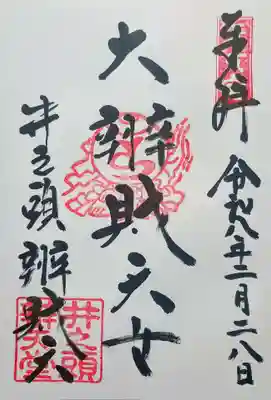 奉拝
令和八年二月二八日
大辨財天女
井之頭辨財天
井之頭
辨財天堂